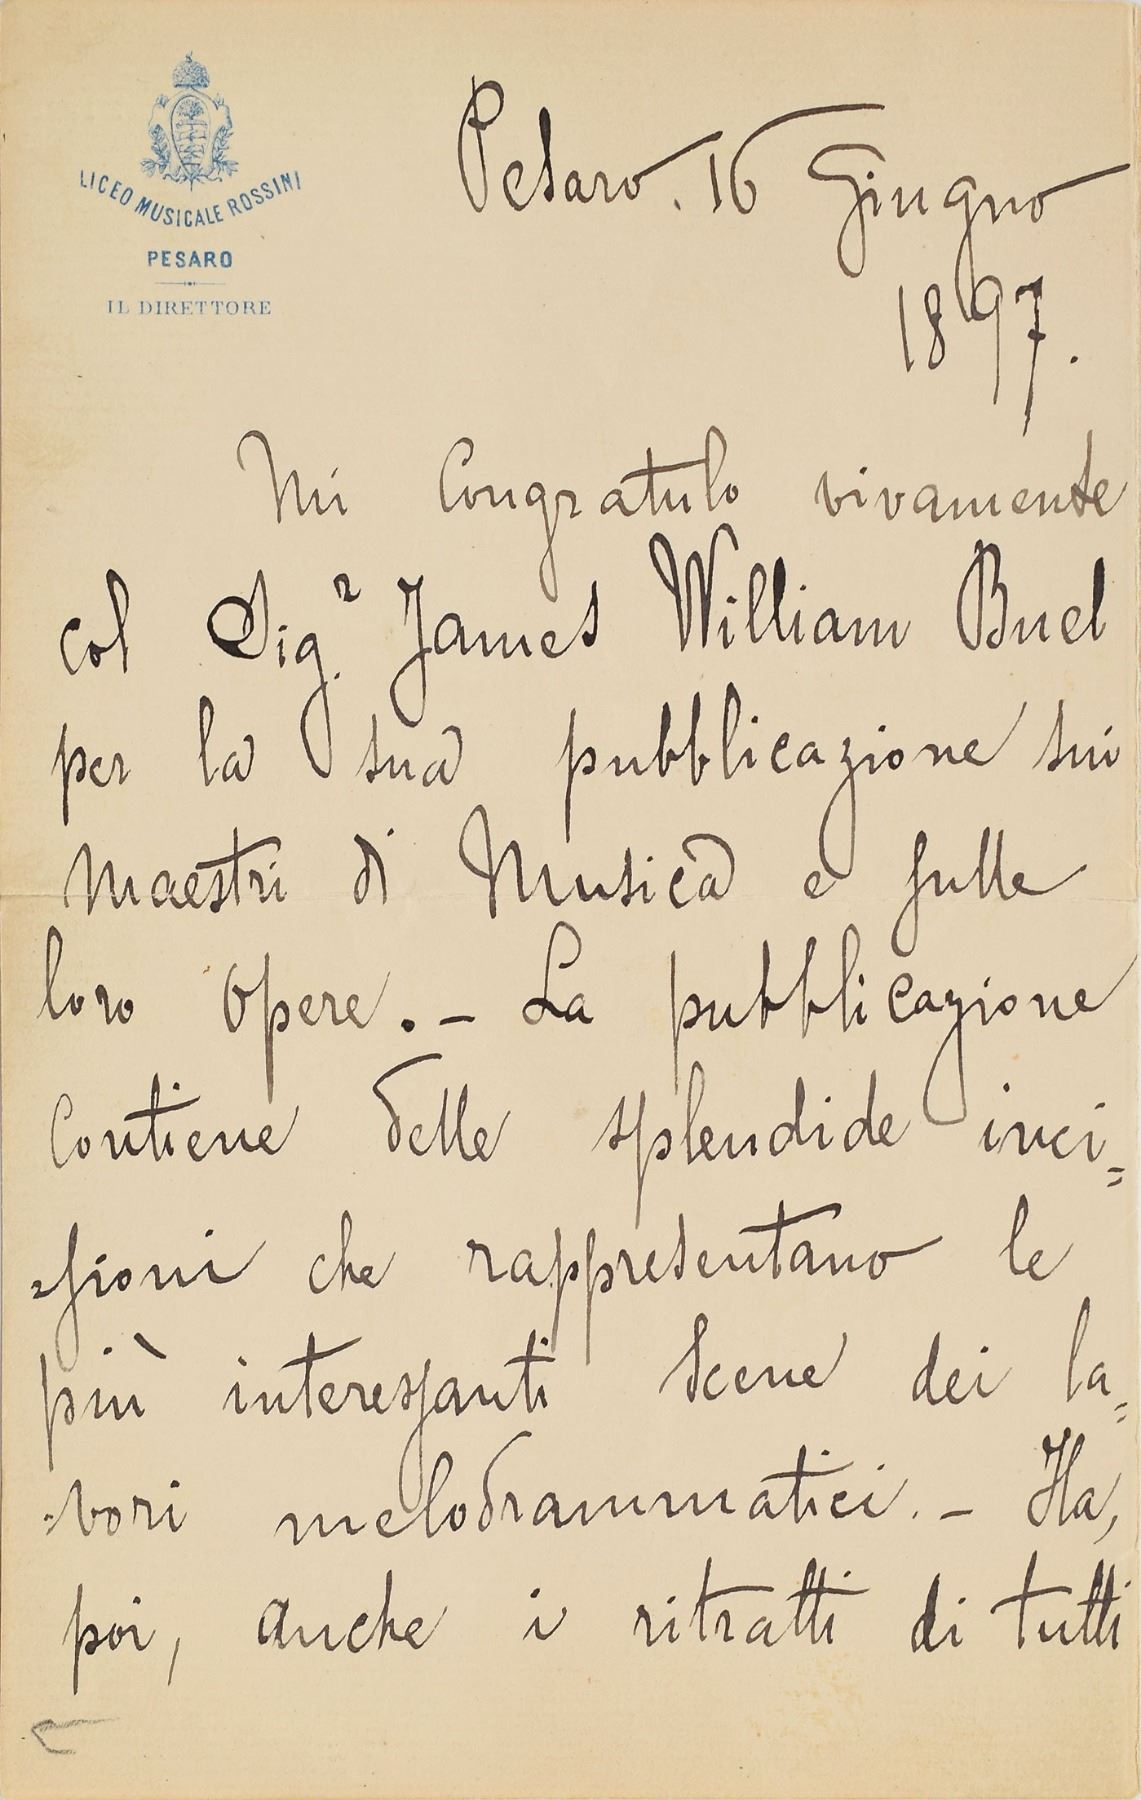 LICEO MUSICALE ROSSINI
PESARO
IL DIRETTORE
Pesaro. 16 Giugno
1897.
Mi Congratulo vivamente
col Sig.r James William Buel
per la sua pubblicazione sui
Maestri di Musica e sulle
loro Opere. – La pubblicazione
Contiene delle splendide inci=
=sioni che rappresentano le
più interessanti Scene dei la=
=vori melodrammatici. – Ha,
poi, anche i ritratti di tutti